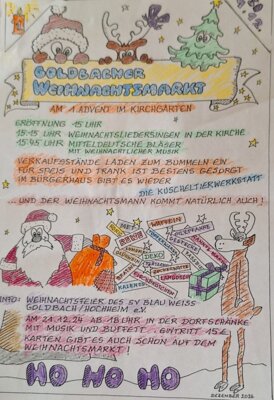 GOLDBACHER
WEIHNACHTSMARKT
AM 1. ADVENT IM KIRCHGARTEN
ERÖFFNUNG 15 UHR
15:15 UHR WEIHNACHTSLIEDERSINGEN IN DER KIRCHE
15:45 UHR MITTELDEUTSCHE BLÄSER
MIT WEIHNACHTLICHER MUSIK
VERKAUFSSTÄNDE LADEN ZUM BUMMELN EIN
FÜR SPEIS UND TRANK IST BESTENS GESORGT
IM BÜRGERHAUS GIBT ES WIEDER
DIE KUSCHELTIERWERKSTATT
... UND DER WEIHNACHTSMANN KOMMT NATÜRLICH AUCH!
WAFFELN
DEKO
KALENDER
INFO: WEIHNACHTSFEIER DES SV BLAU WEISS
GOLDBACH/HOCHHEIM e.V.
AM 21.12.24 AB 18 UHR IN DER DORFSCHÄNKE
MIT MUSIK UND BUFFETT. EINTRITT 15€
KARTEN GIBT ES AUCH SCHON AUF DEM
WEIHNACHTSMARKT!
HO HO HO
DEZEMBER